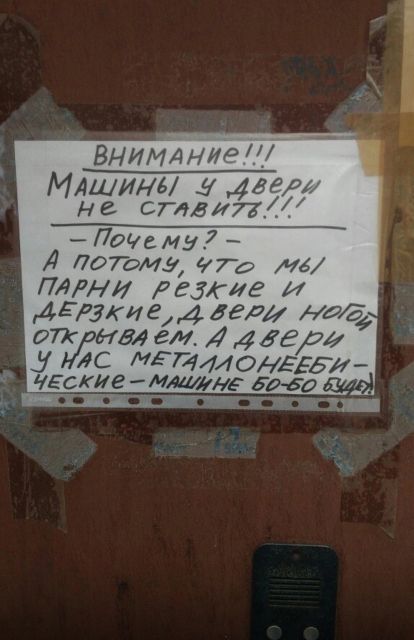 ВНИМАНИЕ!!!
МАШИНЫ У ДВЕРИ
НЕ СТАВИТЬ!!!
– ПОЧЕМУ? –
А ПОТОМУ, ЧТО МЫ
ПАРНИ РЕЗКИЕ И
ДЕРЗКИЕ, ДВЕРИ НОГОЙ
ОТКРЫВАЕМ. А ДВЕРИ
У НАС МЕТАЛЛОНЕЕБИ-
ЧЕСКИЕ – МАШИНЕ БО-БО БУДЕТ!